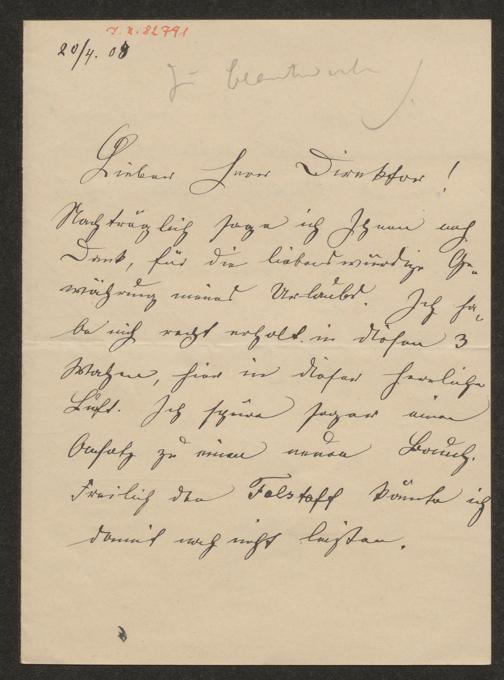 J.N. 82791
20/4. 08
Zu beantworten
Lieber Herr Direktor!
Nachträglich sage ich Ihnen noch
Dank, für die liebenswürdige Ge-
währung meines Urlaubs. Ich ha-
be mich recht erholt in diesen 3
Wochen, hier in dieser herrlichen
Luft. Ich spüre sogar einen
Ansatz zu einem neuen Bauch.
Freilich den Falstaff könnte ich
damit noch nicht leisten.